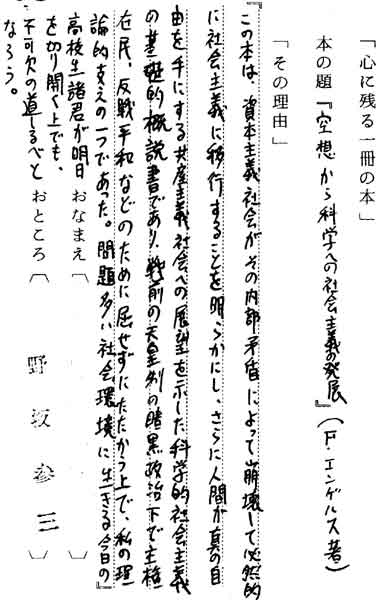 「心に残る一冊の本」
本の題『空想から科学への社会主義の発展』（F・エンゲルス著）
「その理由」
『この本は、資本主義社会がその内部矛盾によって崩壊して必然的
に社会主義に移行することを明らかにし、さらに人間が真の自
由を手にする共産主義社会への展望を示した科学的社会主義
の基礎的概説書であり、戦前の天皇制の暗黒政治下で主権
在民、反戦平和などのために屈せずにたたかう上で、私の理
論的支えの一つであった。問題多い社会環境に生きる今日の』
高校生諸君が明日
を切り開く上でも、
不可欠の道しるべと
なろう。
おなまえ〔
おところ〔 野坂参三 〕